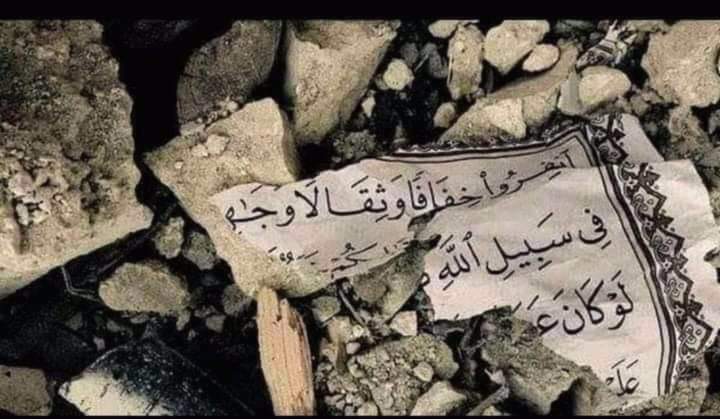 ٱنفِرُوا۟ خِفَافًا وَثِقَالًا وَجَـٰهِ
فِى سَبِيلِ ٱللَّهِ
لَوْ كَانَ عَ
عَلَ